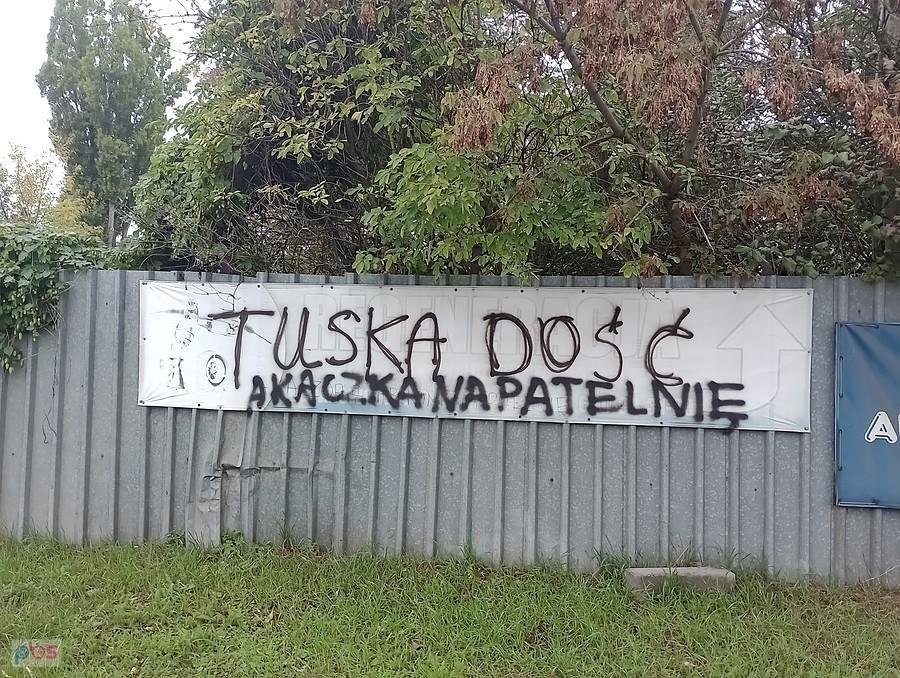 TUSKA DOŚĆ
AKACZKA NA PATELNIĘ
A
pbs